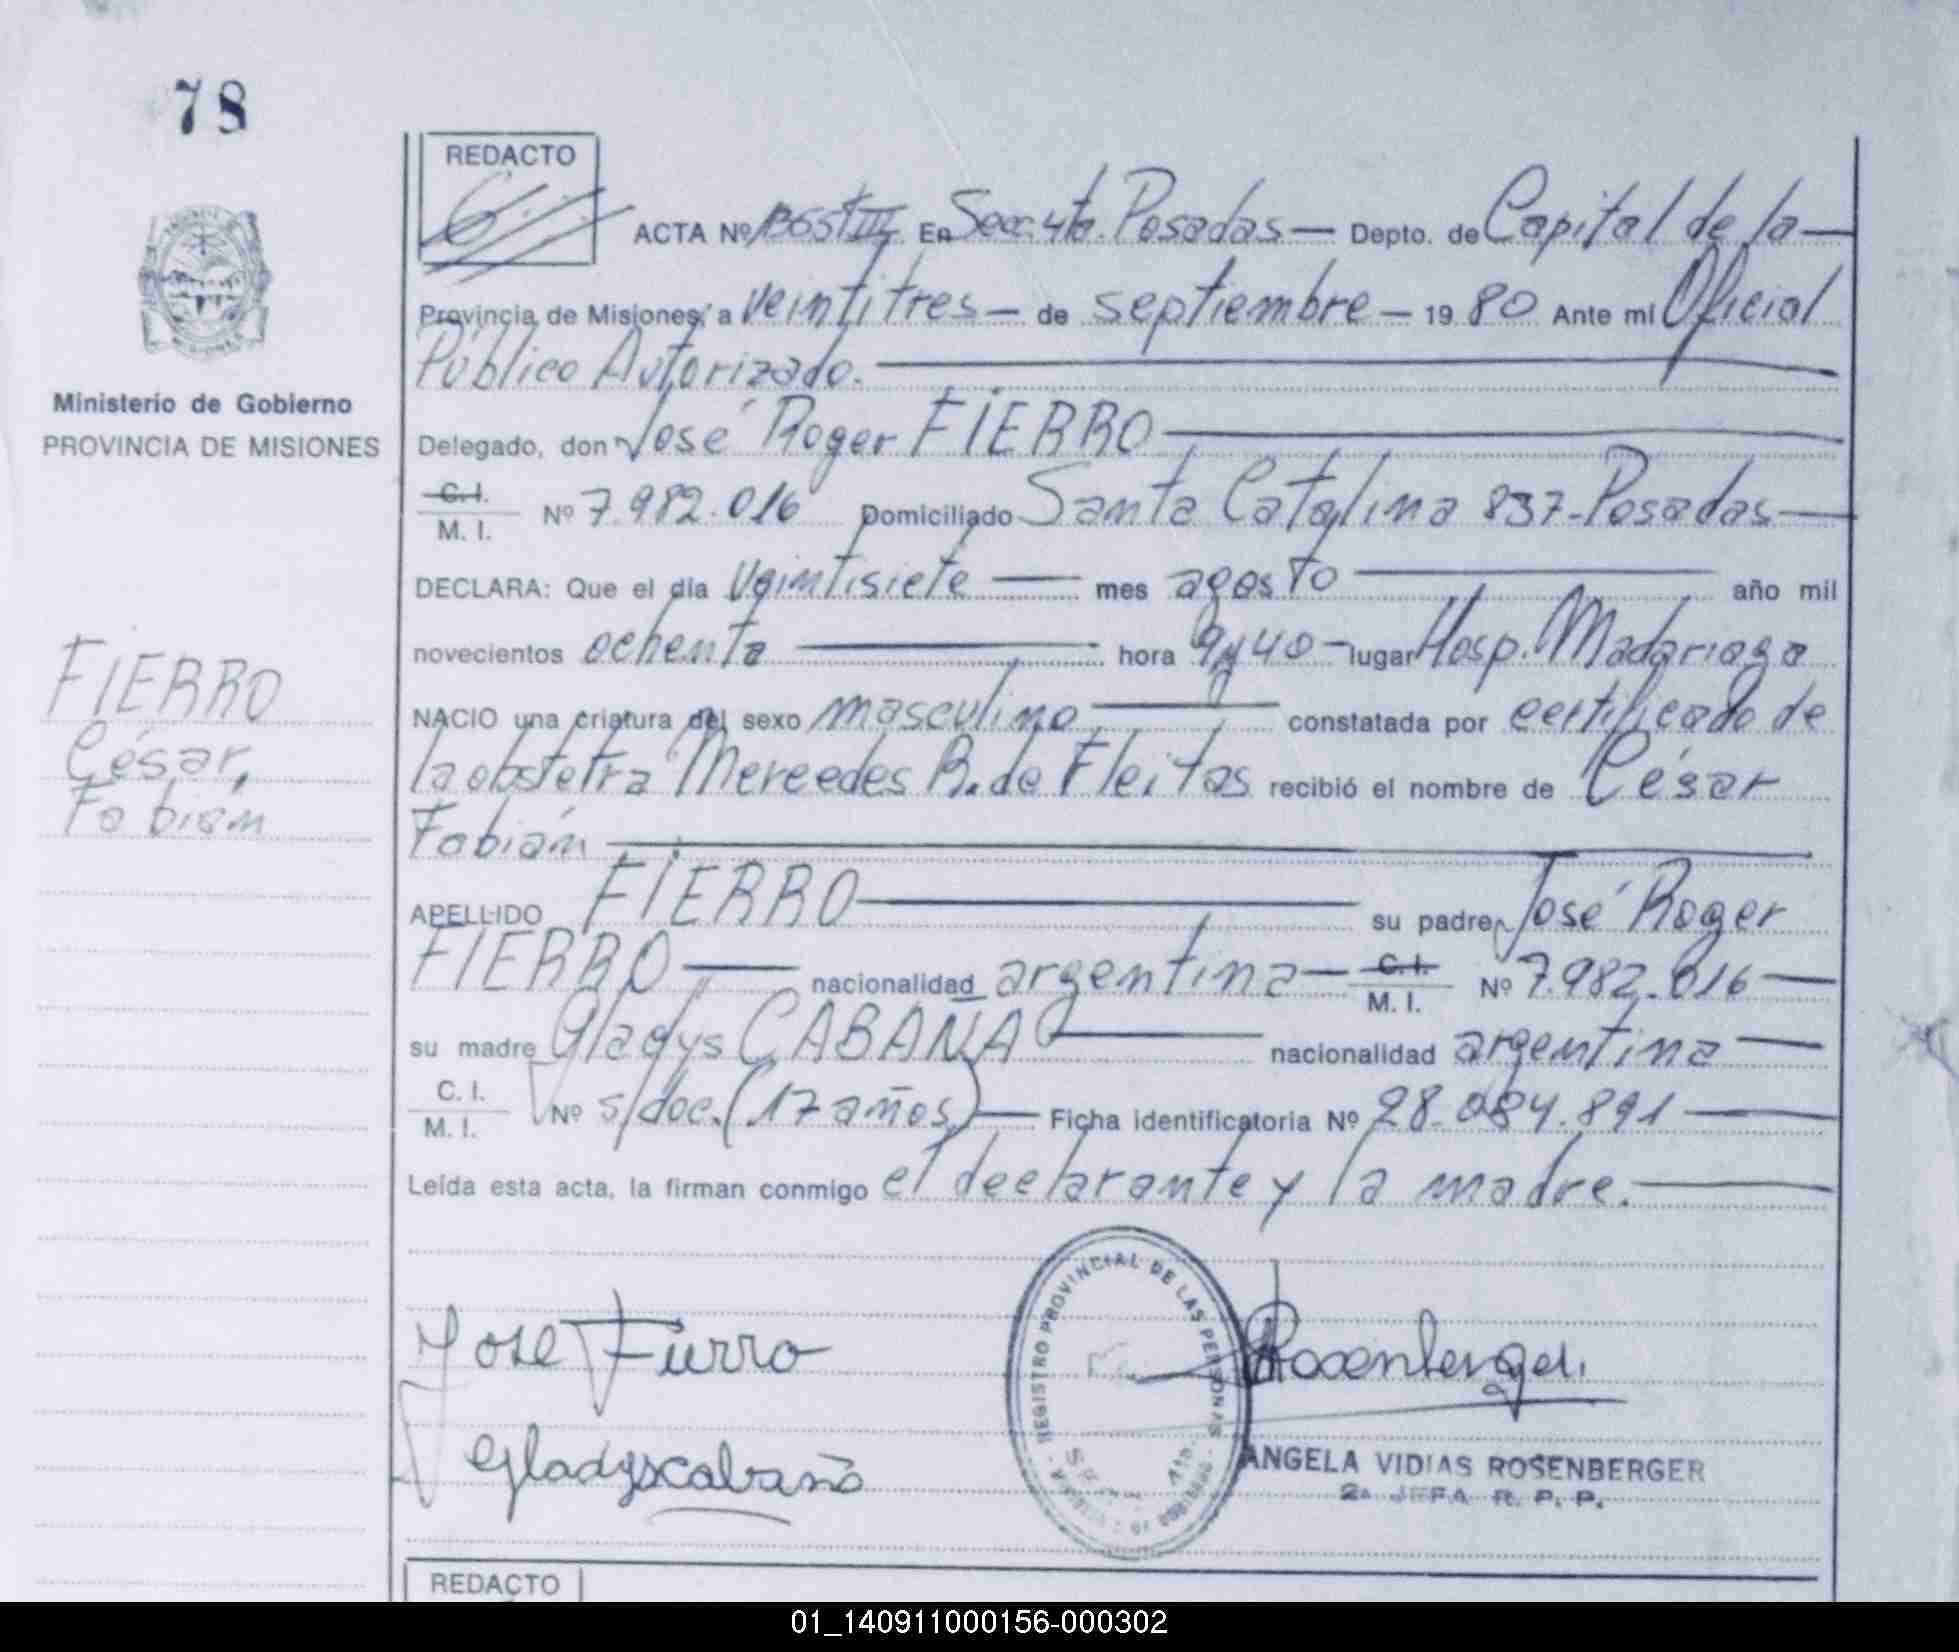 78
REDACTO
ACTA Nº 1365 T III En Secc. 4ta. Posadas — Depto. de Capital de la —
Provincia de Misiones, a veintitres — de septiembre — 1980 Ante mi Oficial
Público Autorizado.
Ministerio de Gobierno
PROVINCIA DE MISIONES
Delegado, don José Roger FIERRO
C.I.
M. I. Nº 7.982.016 Domiciliado Santa Catalina 837-Posadas —
DECLARA: Que el día veintisiete — mes agosto — año mil
novecientos ochenta — hora 9y40 — lugar Hosp. Madariaga
FIERRO
César,
Fabian
NACIO una criatura del sexo masculino — constatada por certificado de
la obstetra Mercedes B. de Fleitas recibió el nombre de César
Fabián
APELLIDO FIERRO — su padre José Roger
FIERRO — nacionalidad argentina — C.I.
M. I. Nº 7.982.016 —
su madre Gladys CABAÑA — nacionalidad argentina —
C. I.
M. I. Nº s/doc. (17 años) — Ficha identificatoria Nº 28.084.891 —
Leída esta acta, la firman conmigo el declarante y la madre. —
REGISTRO PROVINCIAL DE LAS PERSONAS
Jose Fierro
Rosenberger
Gladys cabaña
ANGELA VIDIAS ROSENBERGER
2ª JEFA R. P. P.
REDACTO
01_140911000156-000302